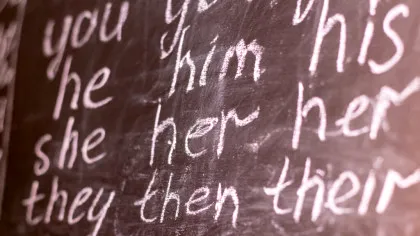 you
he him his
she her her
they then their